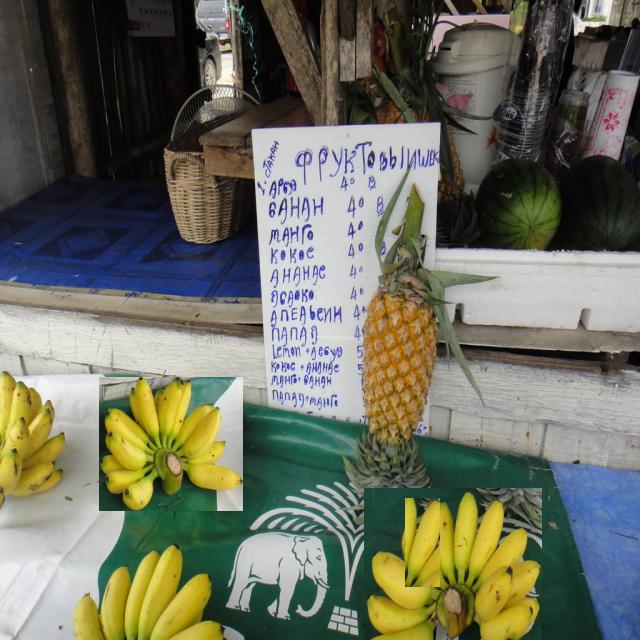 ФРУКТОВЫЙ ШЕК
АРБУ 40 B
БАНАН 40 B
МАНГО 40
КОКОС 40
АНАНАС 40
ЯБЛОКО 40
АПЕЛЬСИН 40
ПАПАЯ 40
Lemon + АРБУЗ 5
КОКОС + АНАНАС 5
МАНГО + БАНАН
ПАПАЯ + МАНГО